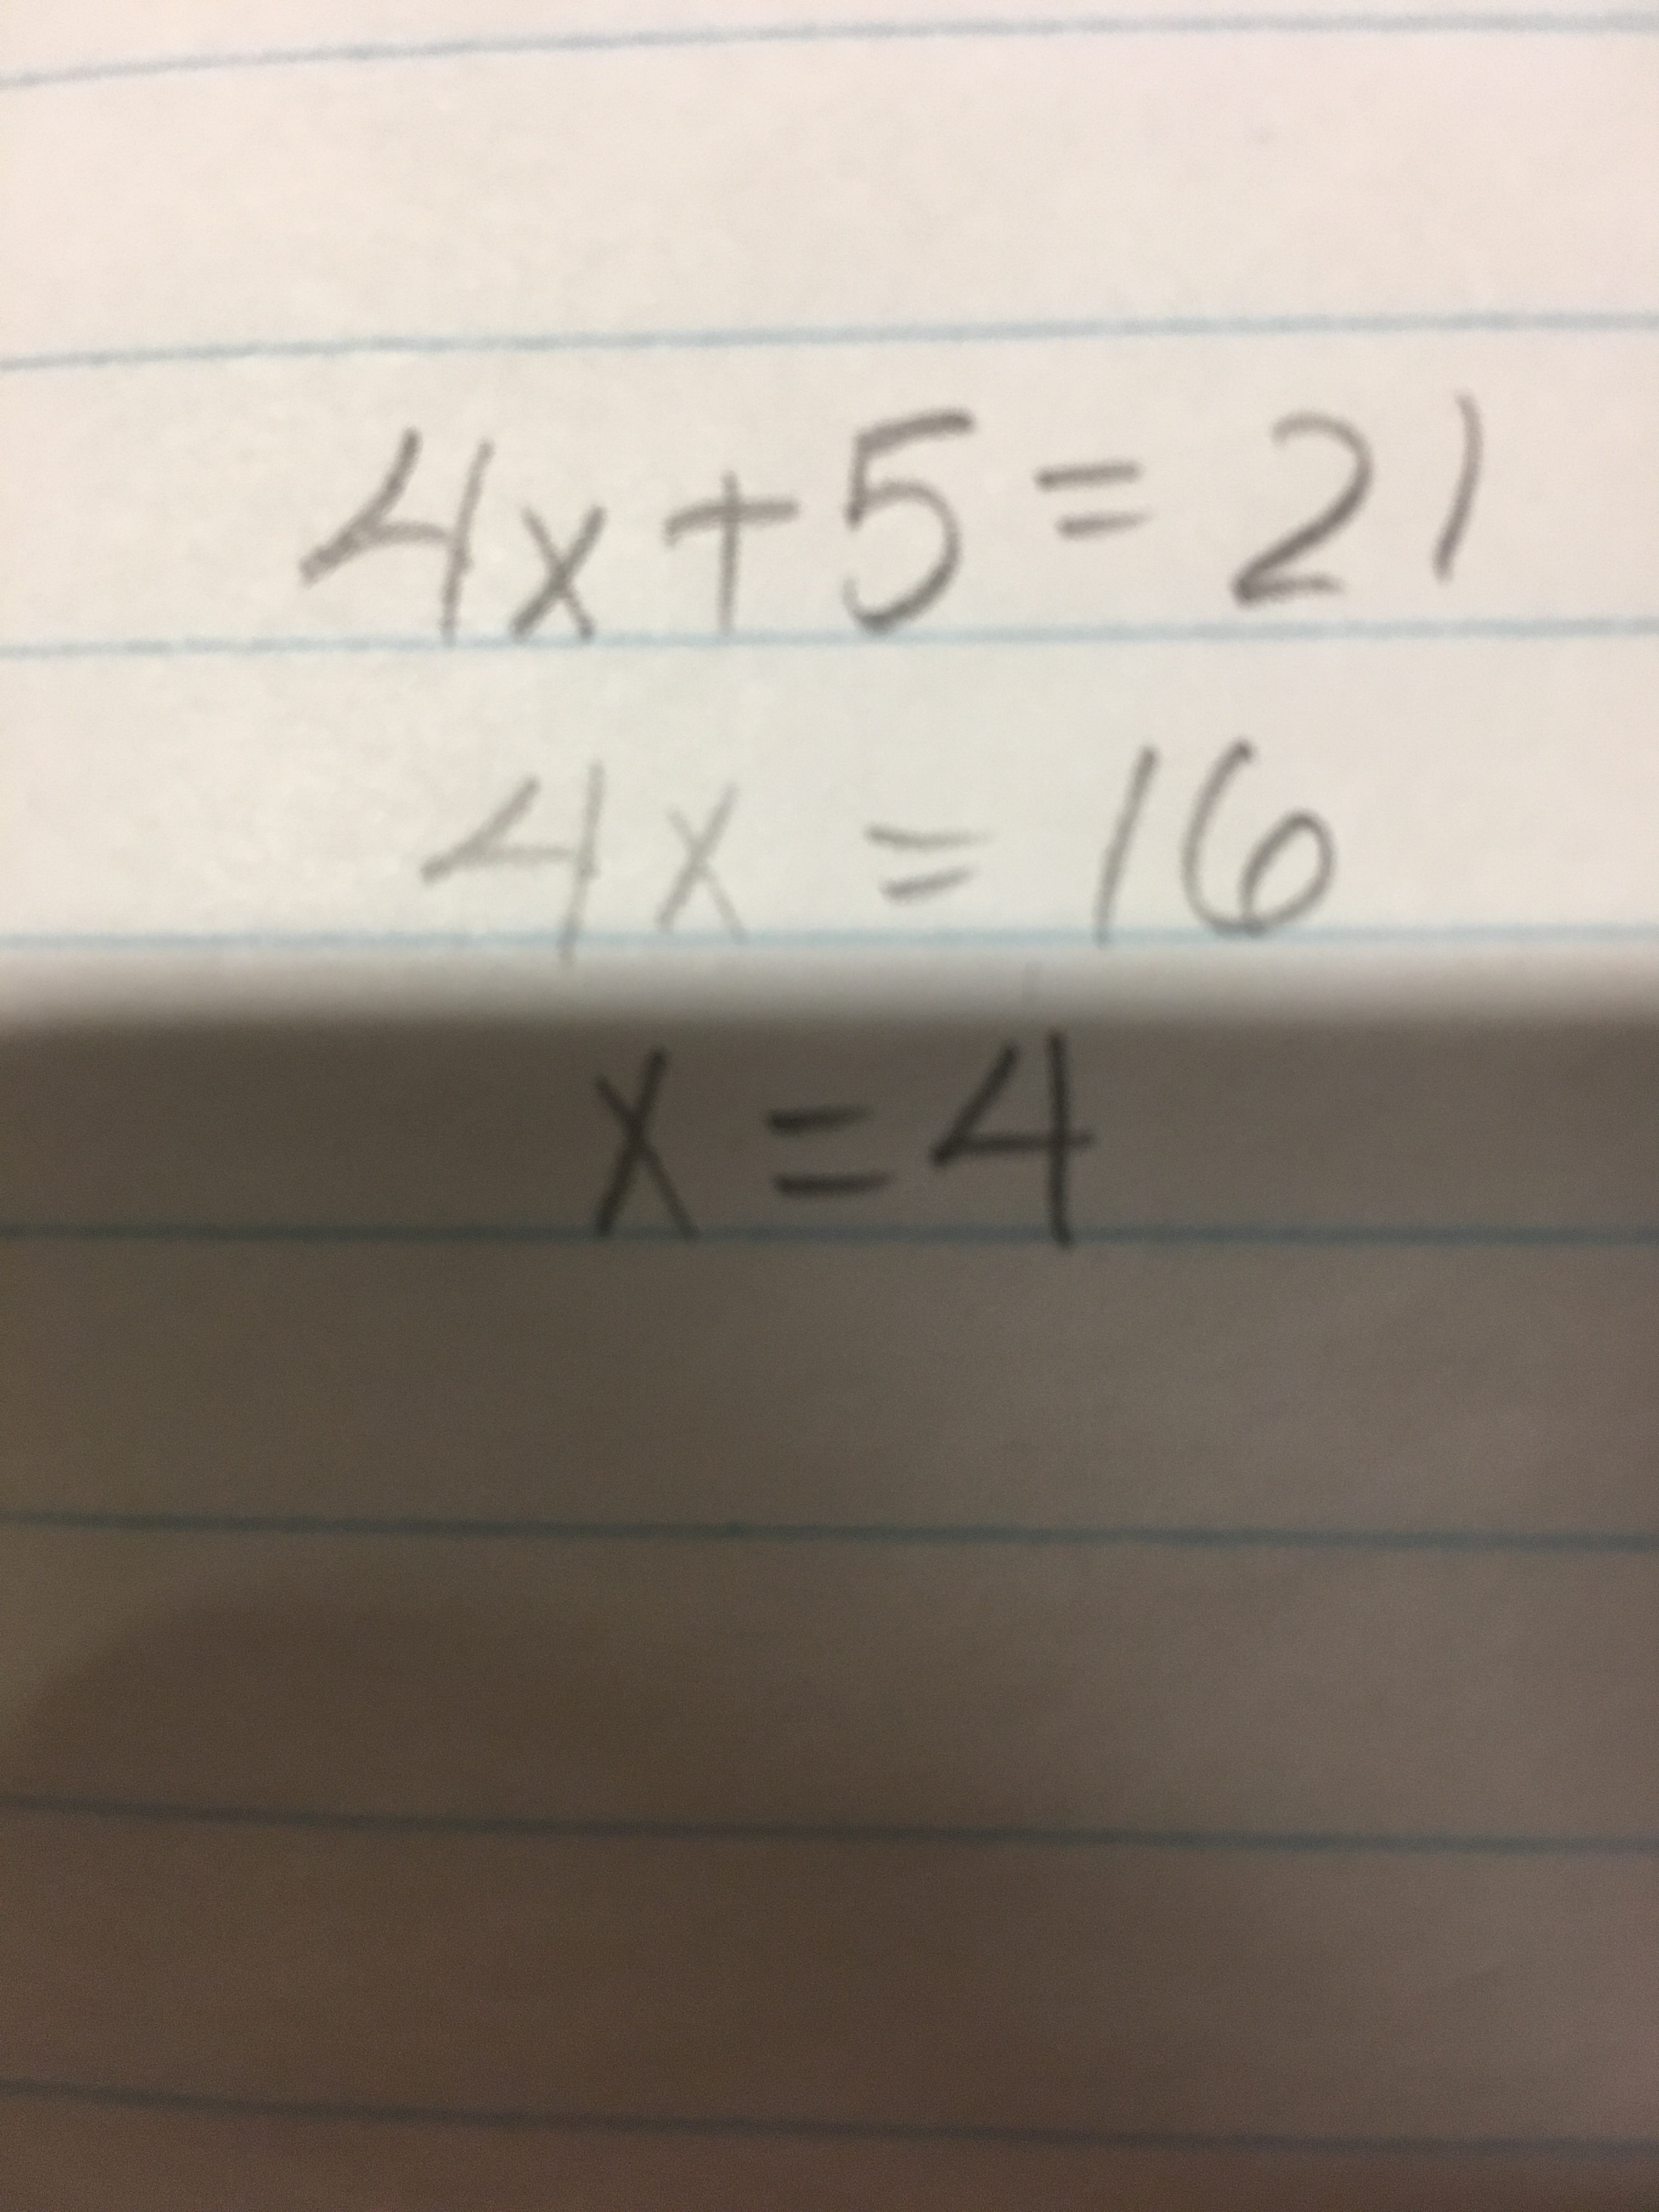 4x+5=21
4x = 16
x=4